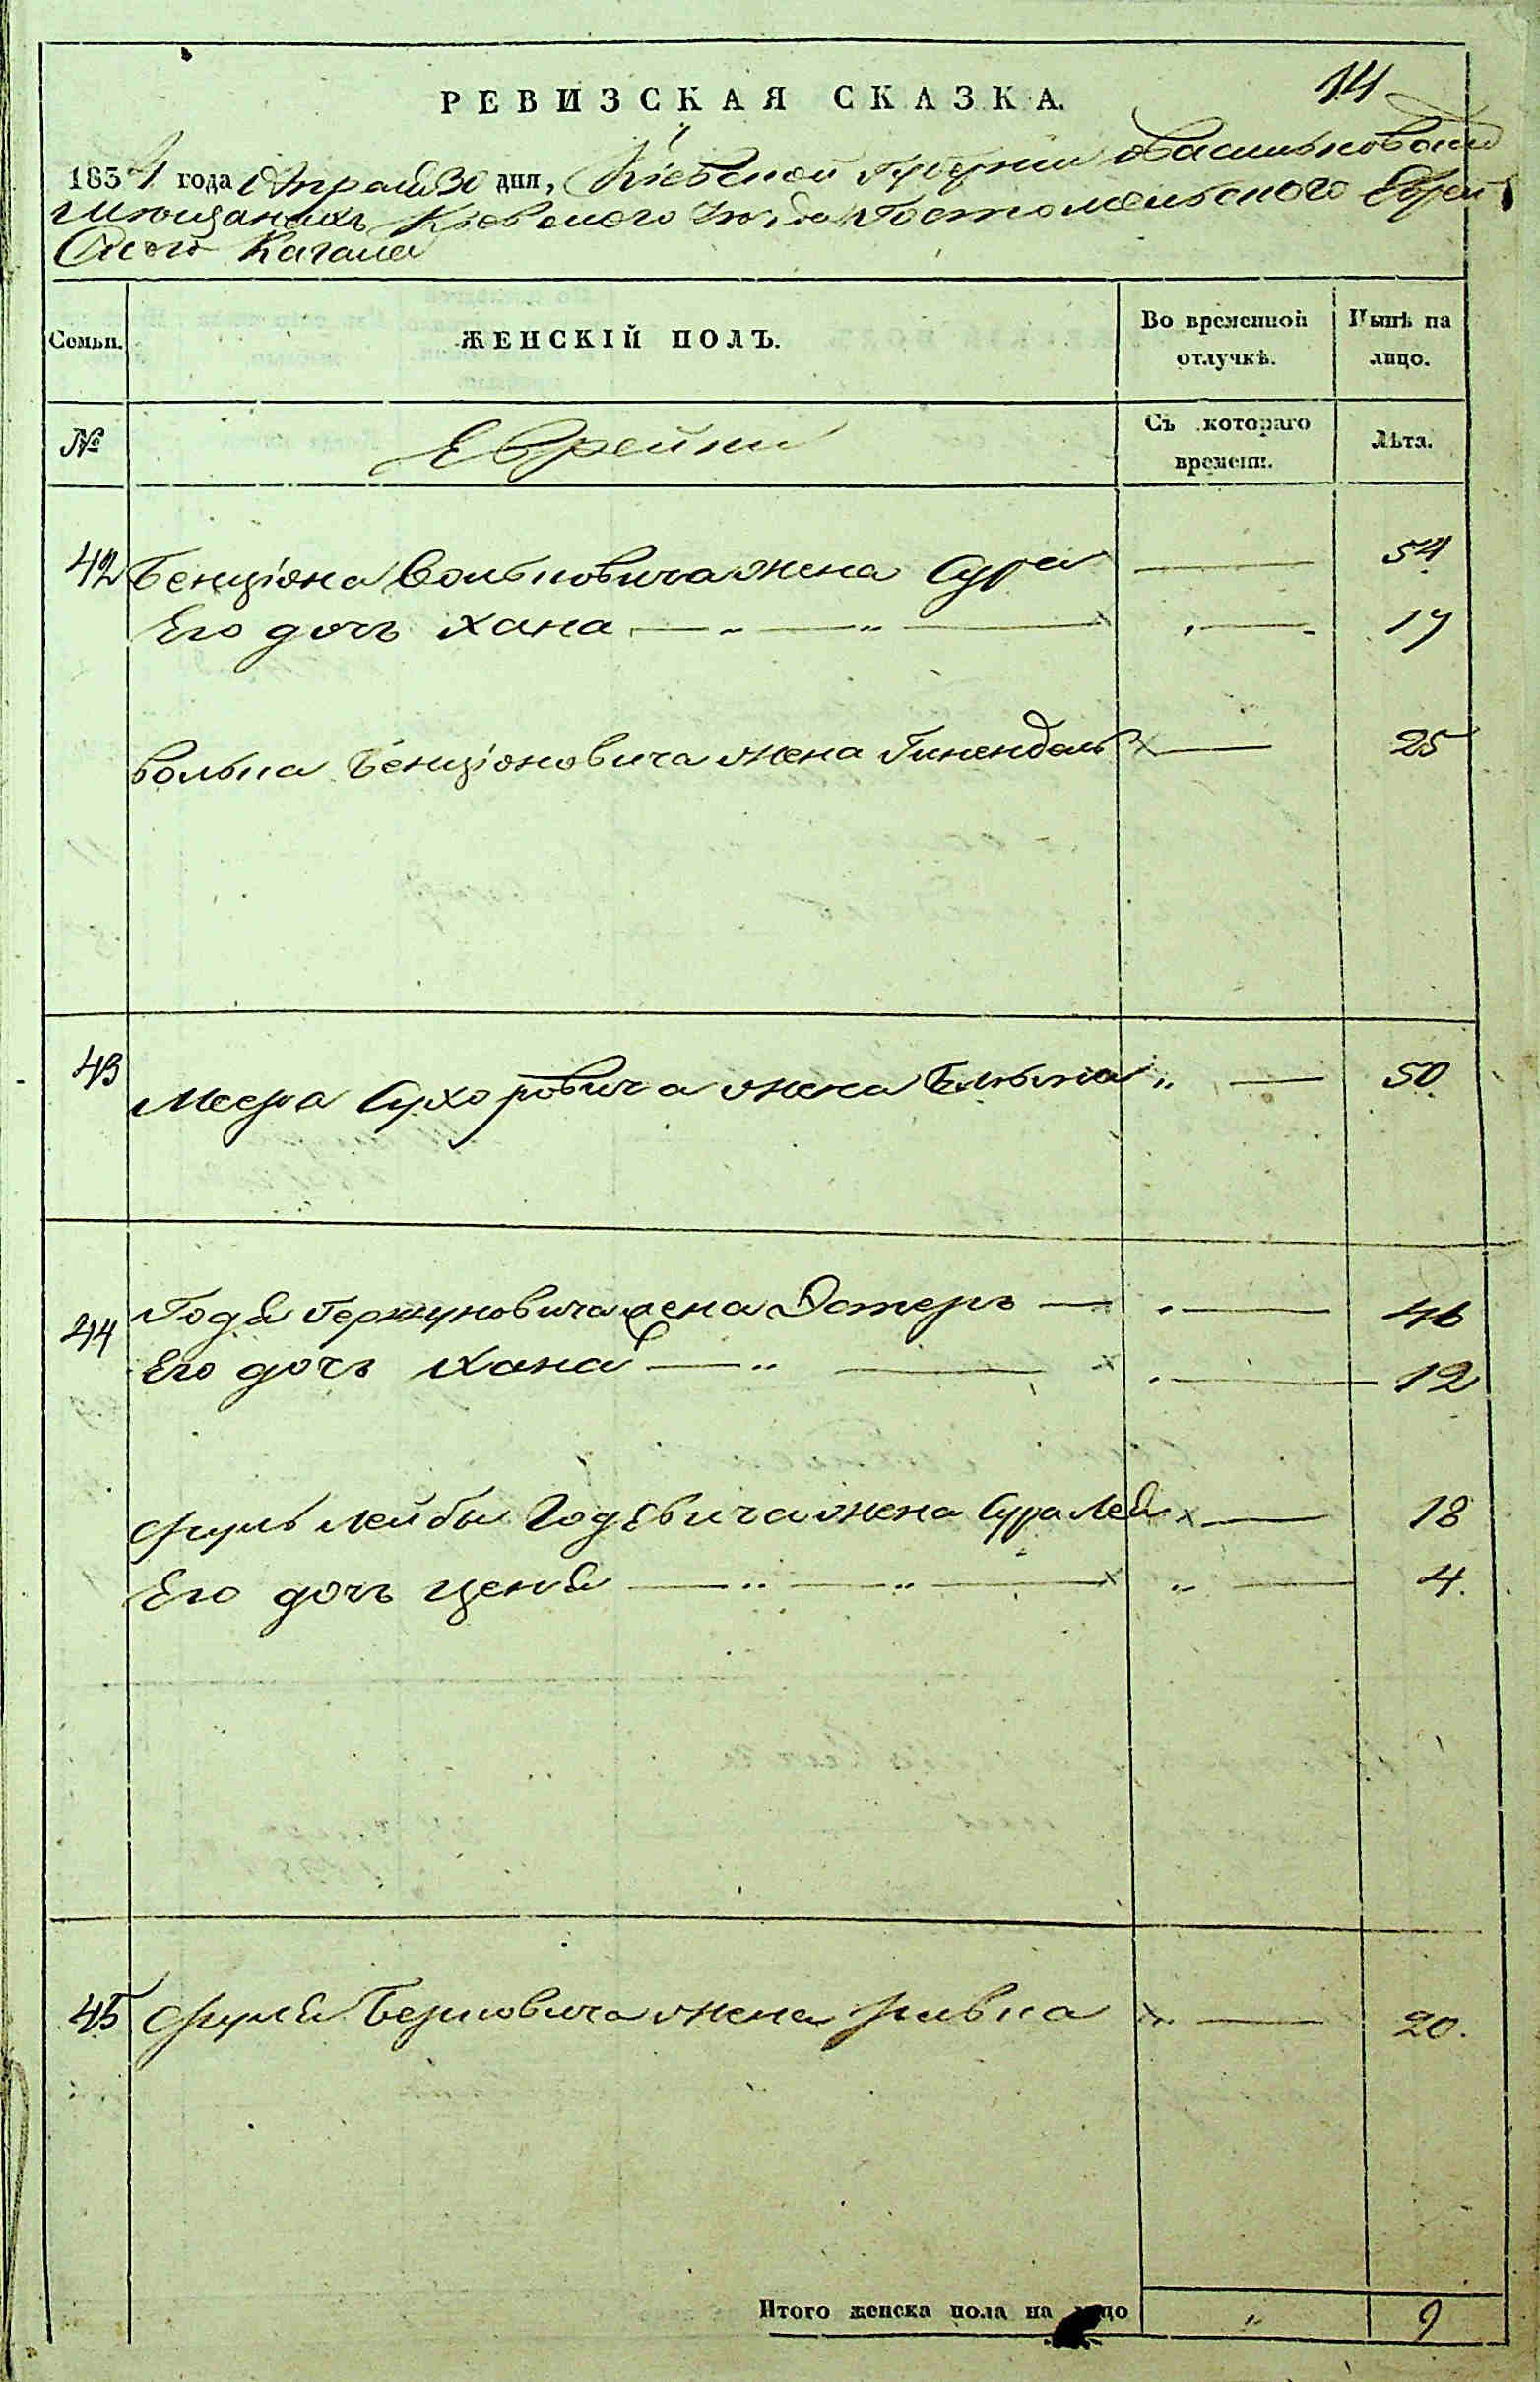 14
РЕВИЗСКАЯ СКАЗКА.
1834 года Апреля 30 дня, Кіевской Губерніи Васильковской
Мѣщанахъ Кіевского уѣзда Гостомельского Еврей
ского Кагала
Семьи. ЖЕНСКІЙ ПОЛЪ. Во временной отлучкѣ. Нынѣ на лицо.
№ Еврейки Съ котораго времени. Лѣта.
42 Бенціона Вольковича жена Сура 54
Его дочь Хана 17
Волька Бенціоновича жена Гинендель 25
43 Меера Сухоровича жена 50
44 Годя Гершуновича жена Эстеръ 46
Его дочь Хана 12
Сруль Лейбы Годевича жена Сура Лея 18
Его дочь Ценя 4.
45 Сруля Берковича жена Ривка 20.
Итого женска пола на лицо " 9